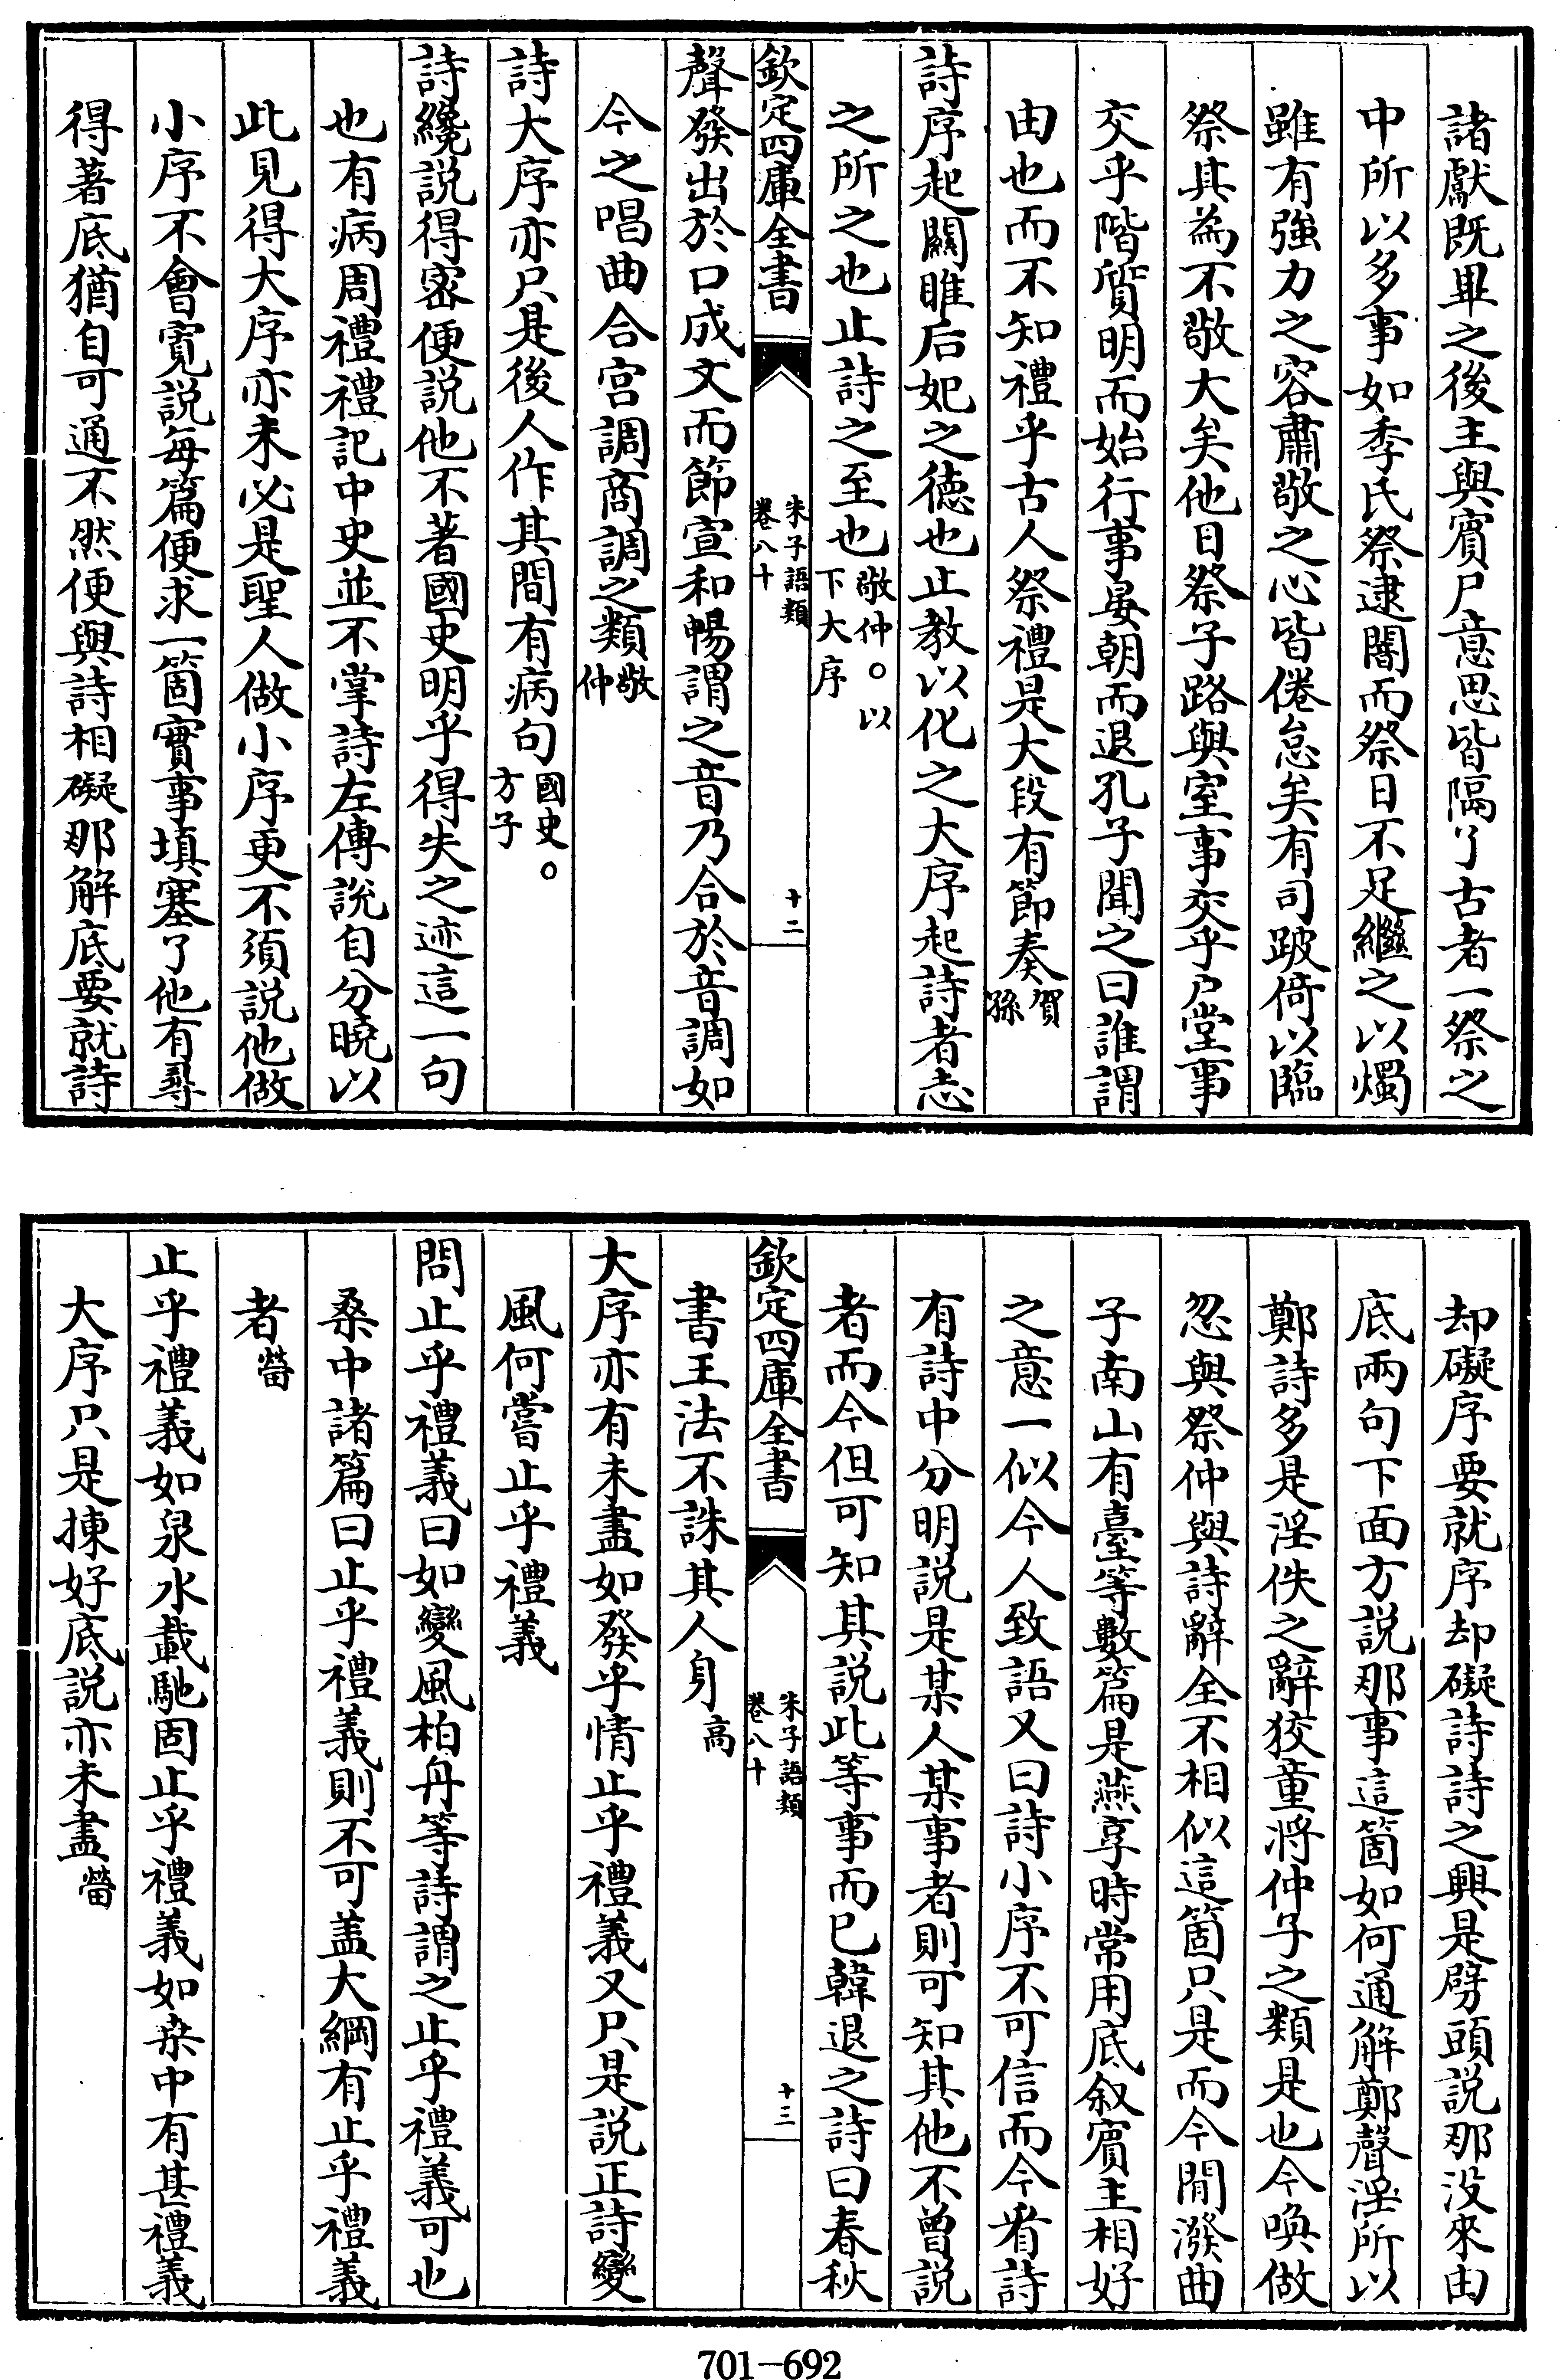 諸獻既畢之後主與賓尸意思皆隔了古者一祭之
中所以多事如季氏祭逮闇而祭日不足繼之以燭
雖有強力之容肅敬之心皆倦怠矣有司跛倚以臨
祭其為不敬大矣他日祭子路與室事交乎户堂事
交乎階質明而始行事晏朝而退孔子聞之曰誰謂
由也而不知禮乎古人祭禮是大段有節奏賀孫
詩序起關雎后妃之德也止教以化之大序起詩者志
之所之也止詩之至也敬仲○以下大序
欽定四庫全書
朱子語類
卷八十
十二
聲發出於口成文而節宣和暢謂之音乃合於音調如
今之唱曲合宫調商調之類敬仲
詩大序亦只是後人作其間有病句國史○方子
詩纔説得密便説他不著國史明乎得失之迹這一句
也有病周禮禮記中史並不掌詩左傳説自分曉以
此見得大序亦未必是聖人做小序更不須説他做
小序不會寛説每篇便求一箇實事填塞了他有尋
得著底猶自可通不然便與詩相礙那解底要就詩
却礙序要就序却礙詩詩之興是劈頭説那没來由
底兩句下面方説那事這箇如何通解鄭聲淫所以
鄭詩多是淫佚之辭狡童將仲子之類是也今喚做
忽與祭仲與詩辭全不相似這箇只是而今閒潑曲
子南山有臺等數篇是燕享時常用底叙賓主相好
之意一似今人致語又曰詩小序不可信而今看詩
有詩中分明説是某人某事者則可知其他不曾説
者而今但可知其説此等事而已韓退之詩曰春秋
欽定四庫全書
朱子語類
卷八十
十三
書王法不誅其人身高
大序亦有未盡如發乎情止乎禮義又只是説正詩變
風何嘗止乎禮義
問止乎禮義曰如變風柏舟等詩謂之止乎禮義可也
桑中諸篇曰止乎禮義則不可盖大綱有止乎禮義
者𤲞
止乎禮義如泉水載馳固止乎禮義如桒中有甚禮義
大序只是揀好底説亦未盡𤲞
701-692